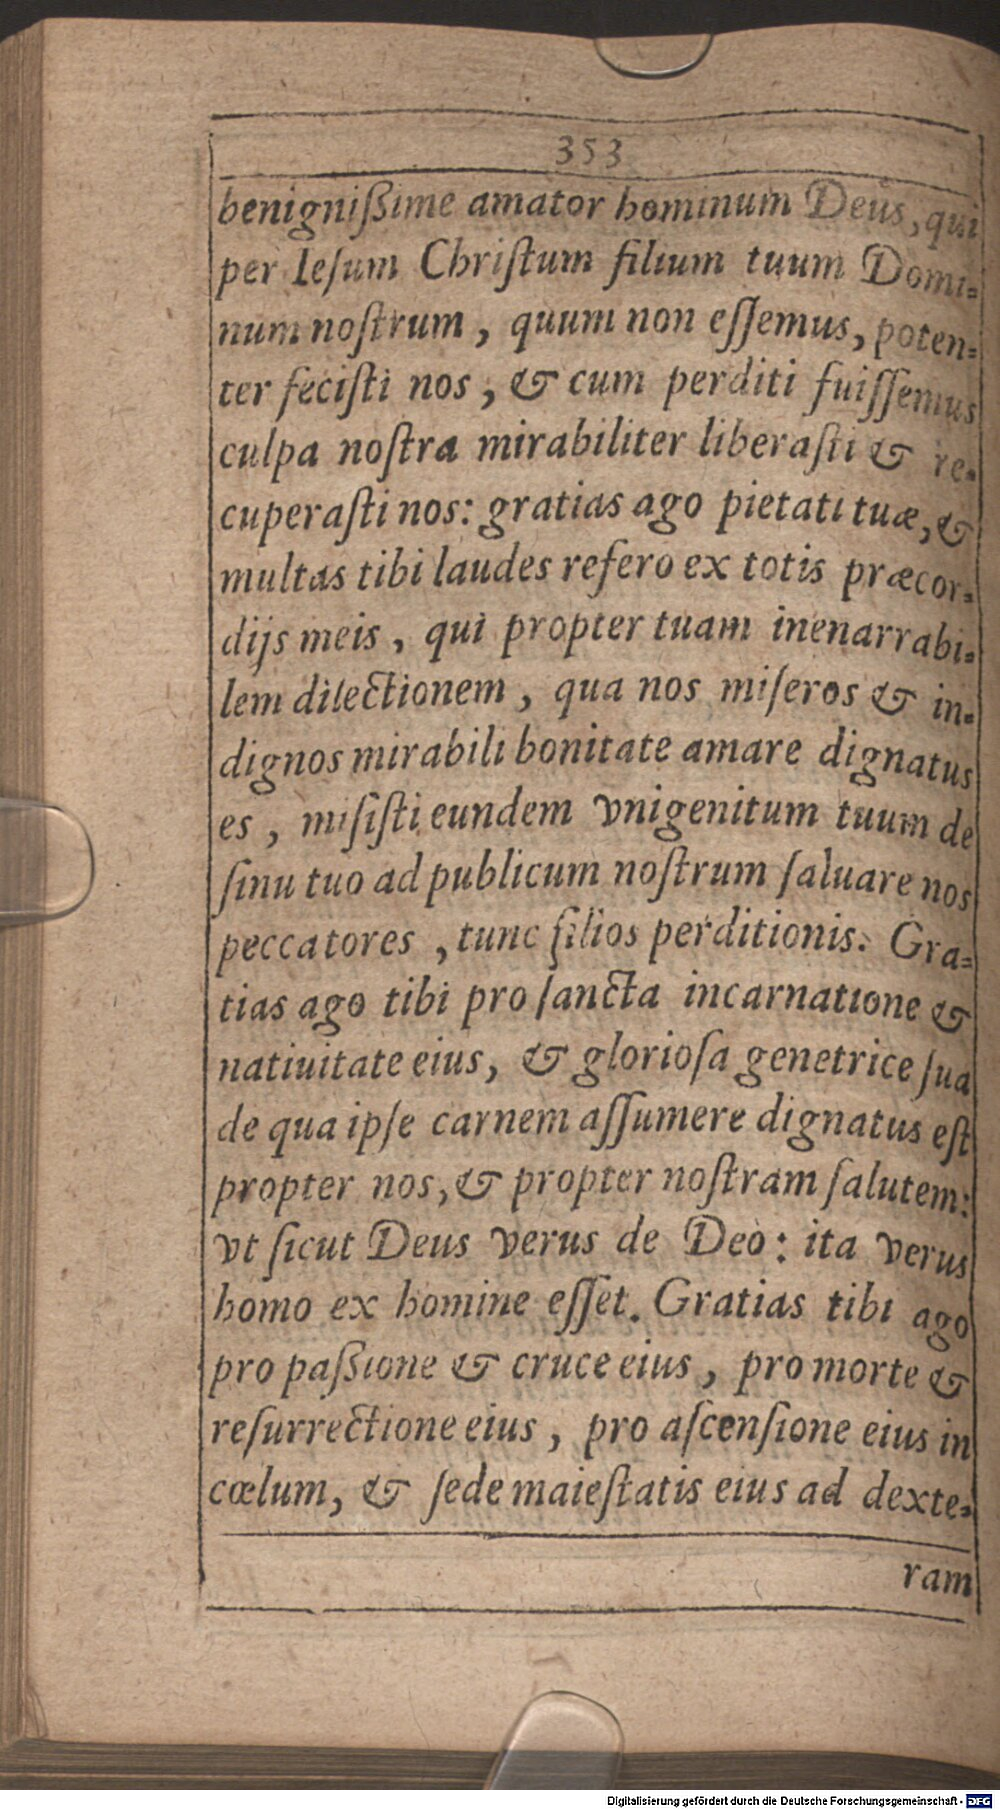 353
benignißime amator hominum Deus, qui
per Ieſum Chriſtum filium tuum Domi-
num noſtrum, quum non eſſemus, poten-
ter feciſti nos, & cum perditi fuiſſemus
culpa noſtra mirabiliter liberaſti & re-
cuperaſti nos: gratias ago pietati tuæ, &
multas tibi laudes refero ex totis præcor-
dijs meis, qui propter tuam inenarrabi-
lem dilectionem, qua nos miſeros & in-
dignos mirabili bonitate amare dignatus
es, miſiſti eundem vnigenitum tuum de
ſinu tuo ad publicum noſtrum ſaluare nos
peccatores, tunc filios perditionis. Gra-
tias ago tibi pro ſancta incarnatione &
natiuitate eius, & glorioſa genetrice ſua
de qua ipſe carnem aſſumere dignatus eſt
propter nos, & propter noſtram ſalutem:
vt ſicut Deus verus de Deo: ita verus
homo ex homine eſſet. Gratias tibi ago
pro paßione & cruce eius, pro morte &
reſurrectione eius, pro aſcenſione eius in
cœlum, & ſede maieſtatis eius ad dexte-
ram
Digitalisierung gefördert durch die Deutsche Forschungsgemeinschaft - DFG